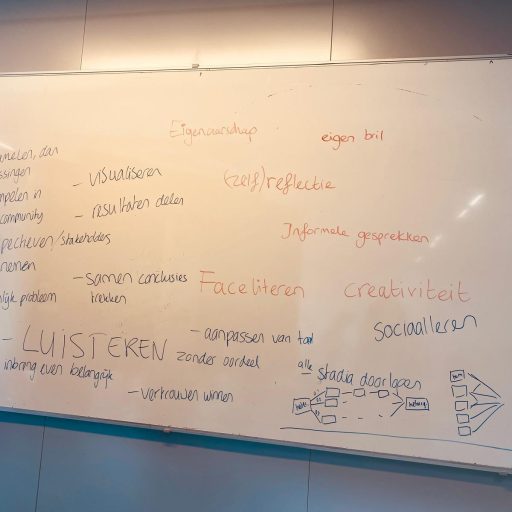 Eigenaarschap
eigen bril
(zelf)reflectie
Informele gesprekken
Faceliteren
creativiteit
sociaalleren
amelen, dan
ssingen
mpelen in
community
pecheven/stakeholders
nemen
lijk probleem
- visualiseren
- resultaten delen
- samen conclusies
trekken
- LUISTEREN
zonder oordeel
inbreng even belangrijk
- aanpassen van taal
- vertrouwen winnen
alle stadia doorlopen